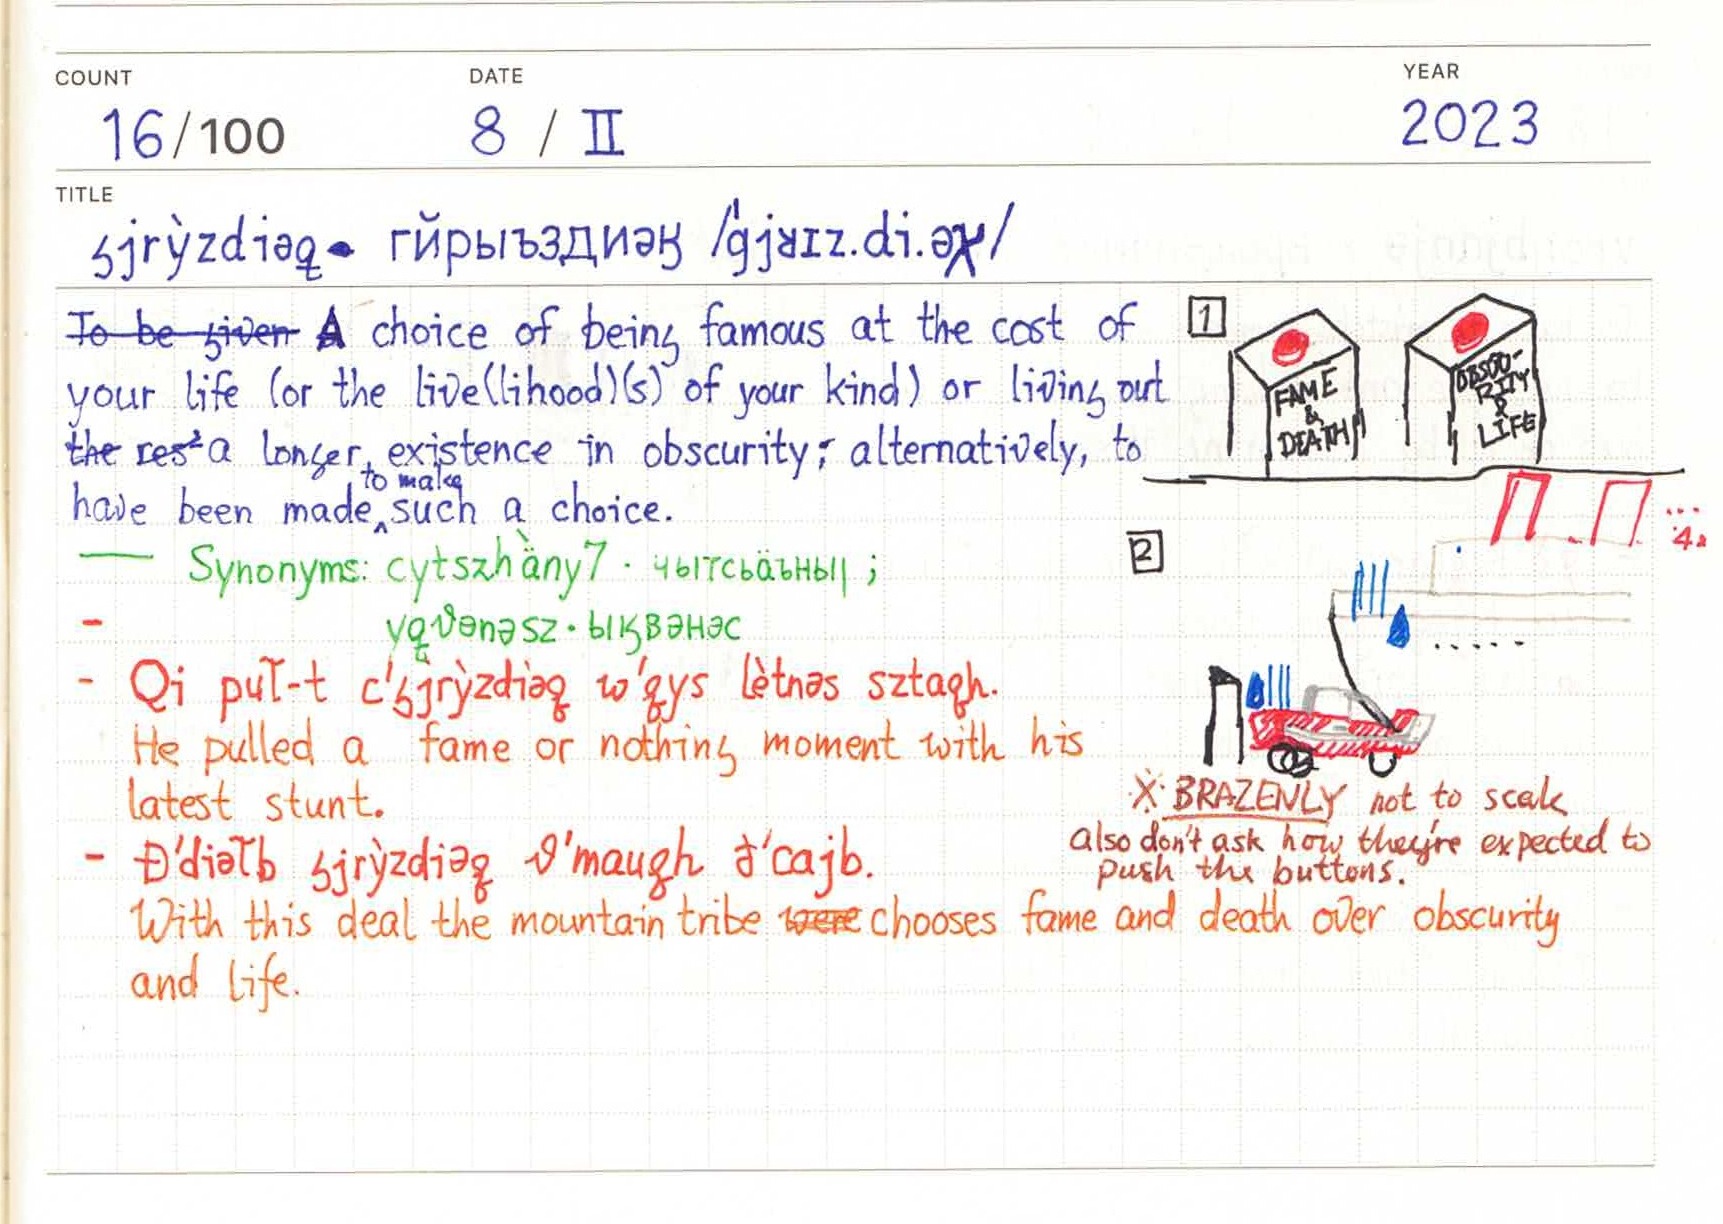 COUNT DATE YEAR
16/100 8 / II 2023
TITLE
ꞔjrỳzdiəq · гйрыъздиəӄ /ɡjʁɪz.di.əχ/
To be given A choice of being famous at the cost of
your life (or the live(lihood)(s) of your kind) or living out
the res a longer existence in obscurity; alternatively, to
have been made to make such a choice.
Synonyms: cytszhàny7 · чытсьäъныц ;
yqϑənəsz · ыӄвəнэс
- Qi pul̃-t c'gjrỳzdiəq w'qys lètnəs sztaqh.
He pulled a fame or nothing moment with his
latest stunt.
- Đ'diəl̃b gjrỳzdiəq ϑ'maugh ð'cajb.
With this deal the mountain tribe were chooses fame and death over obscurity
and life.
1
FAME
&
DEATH
OBSCU-
RITY
&
LIFE
2
※ BRAZENLY not to scale
also don't ask how they're expected to
push the buttons.